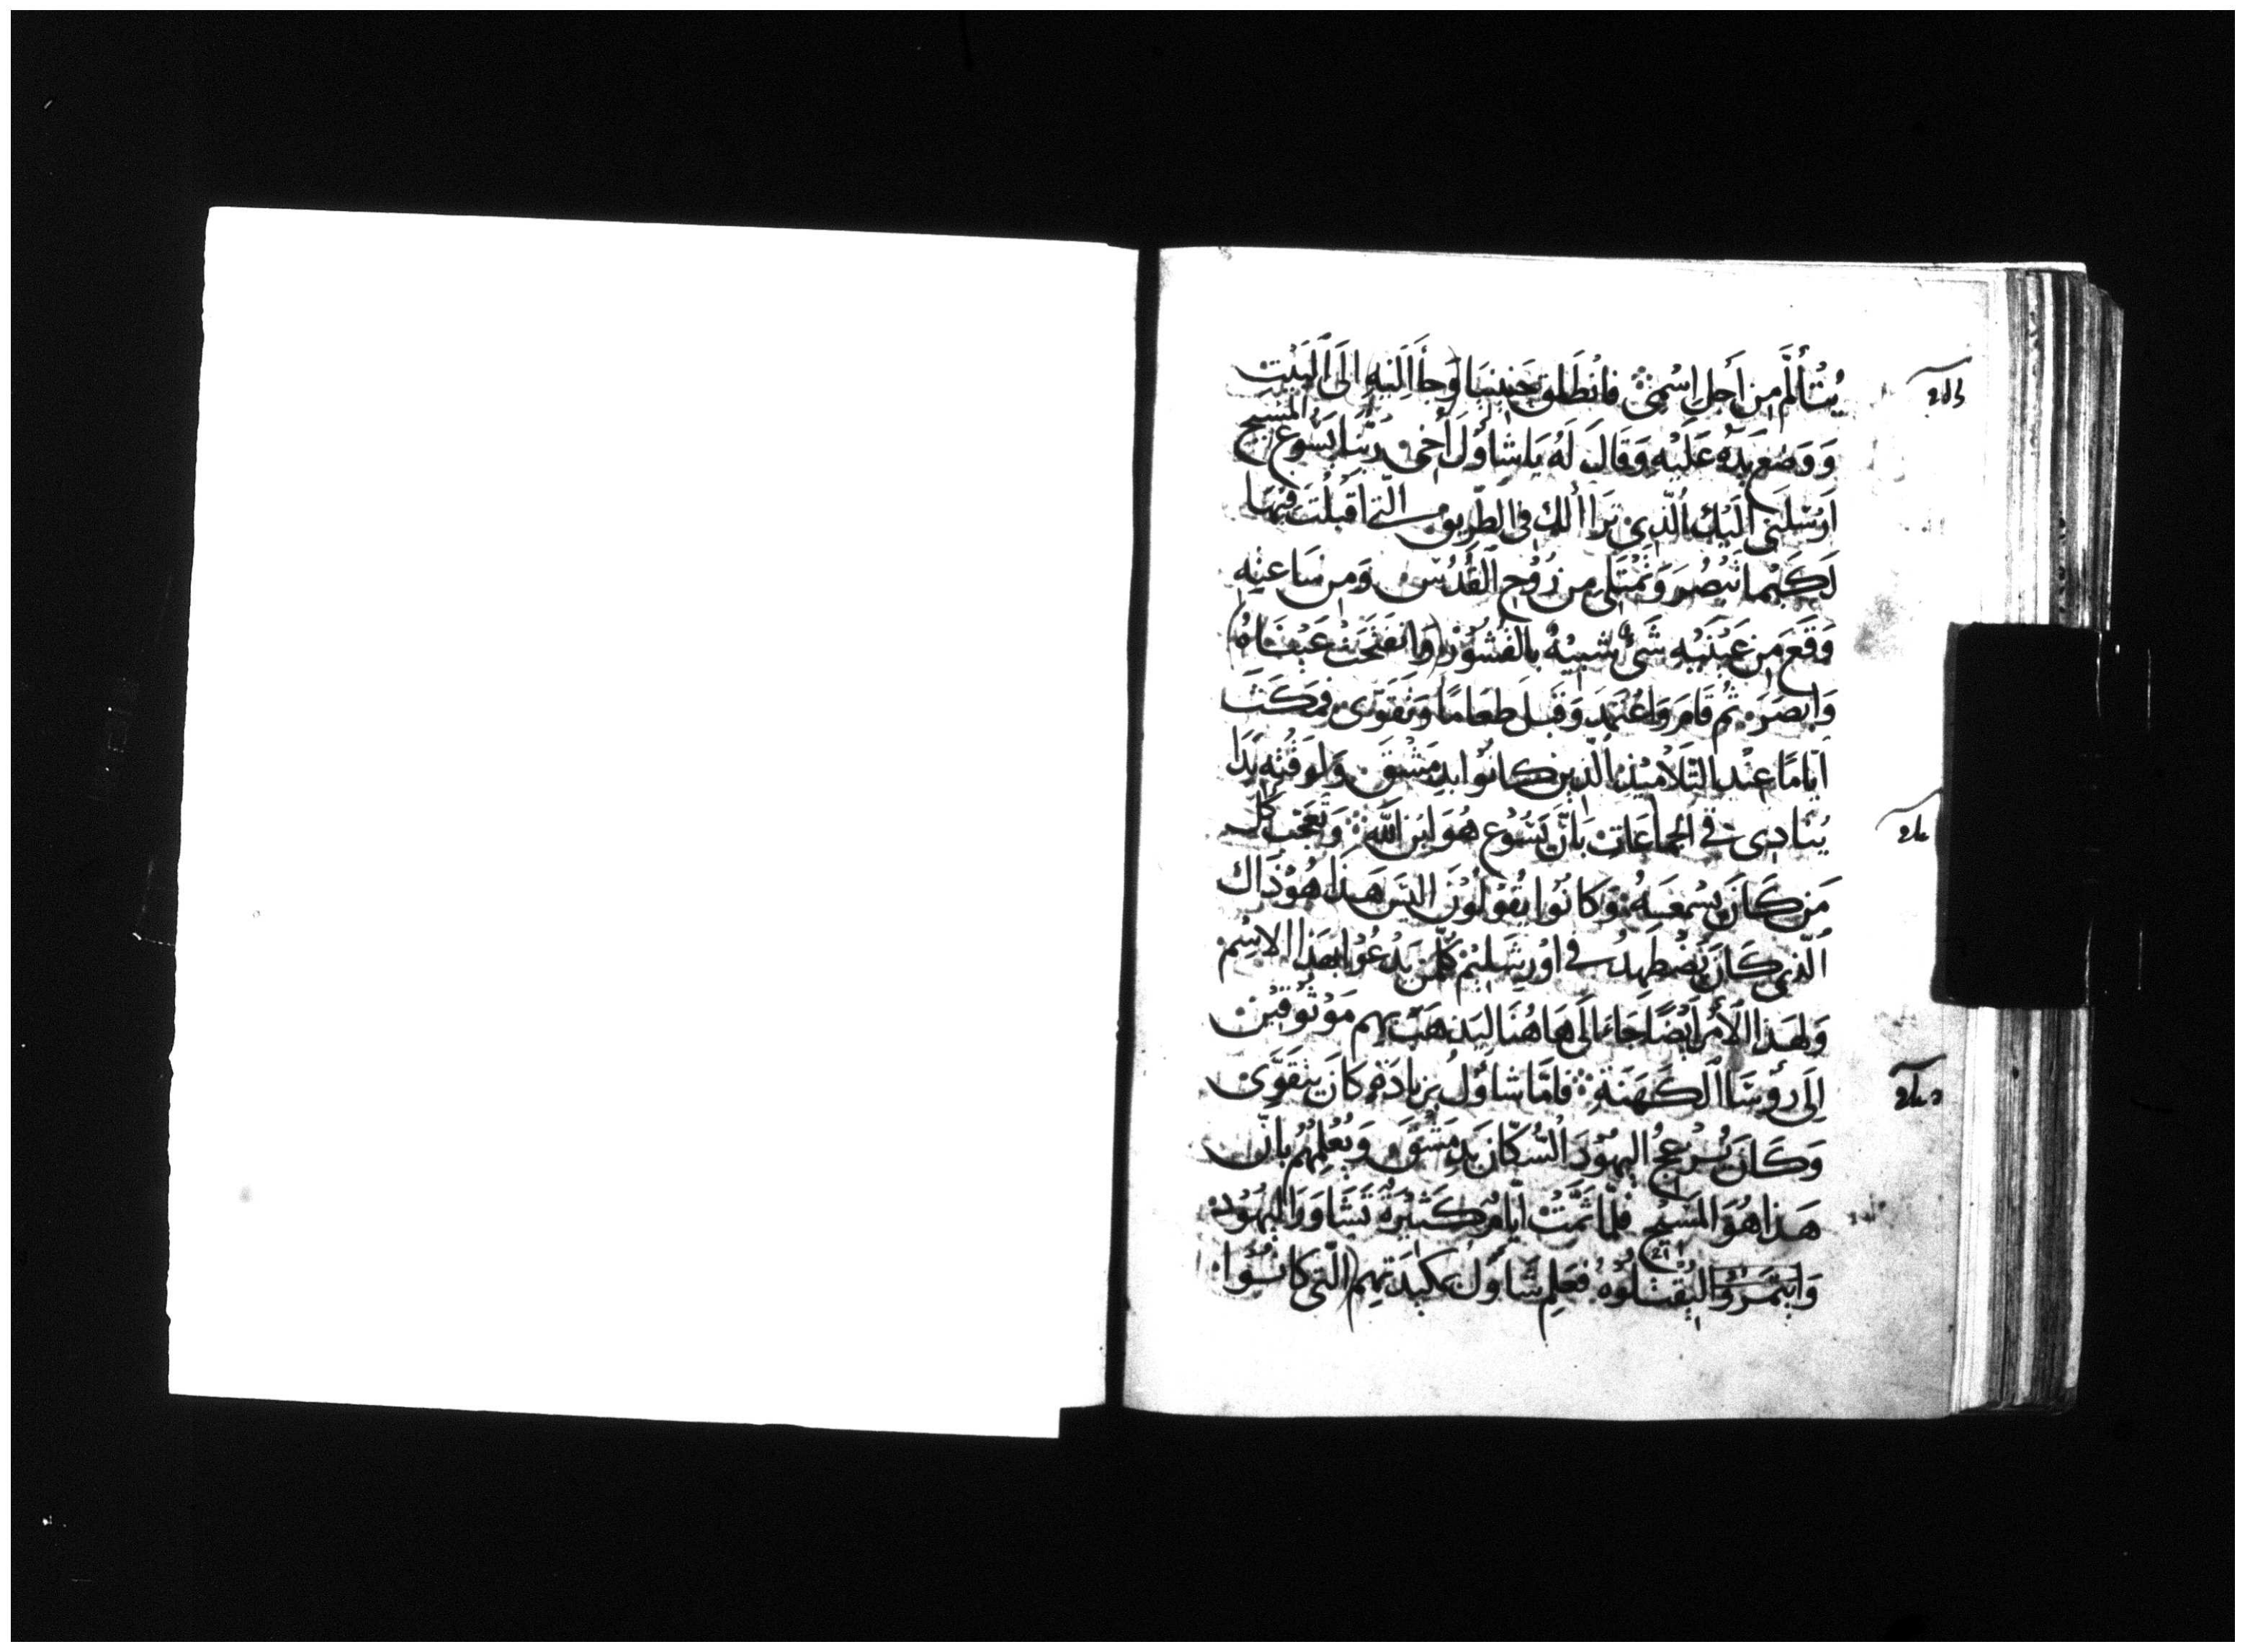 يُتْأَلَّم مِن أَجلِ اِسْمِيْ فانْطَلق حَنِينَيا وَجاَ اَلِيْهِ اِلَى اَلبَيْتِ
وَوَضع يَدَهُ عَلَيْهِ وَقَالَ لَهُ يَا شَاوُلَ أَخي رَبّنا يَسُوع المَسِيح
اَرْسَلَنِي اَلَيْكَ الَّذِي تَرَاأ لك في الطَّرِيق التي اَقبَلْتَ فِيْهَا
لَكَيْما تَبْصُرَ وَتَمْتَلي مِن رُوْحِ اَلقُدُسِ وَمِن سَاعتِهِ
وَقَعَ مِن عَيْنَيْهِ شَئ شَبِيْهٌ بالقُشُوْرْ (وَاَنفَتَحَت عَيْنَاهُ)
وَاَبصَرَ ثُم قَامَ وَاعْتَمَدَ وَقَبلَ طعَامًا وَتَقَوّى فمَكَثَ
ايّامًا عِنْد التَلَامِيْذ الَّذِين كانُوا بدِمَشْقَ وَلوقْتِهِ بَدَا
يُنَادِي في الجمَاعَاتِ بَانَّ يَسُوْع هُوَ ابن اللّه وَتَعَجّبَ كُل
مَن كَانَ يسْمعَهُ وَكانُوا يَقُولُونَ اليسَ هَذا هُوَ ذَاك
اَلّذِي كَانَ يَضْطهدُ في اوْرِشَلِيْم كُلّمن يَدْعُوا بهَذا الاسْم
وَلِهَذا الأَمْر اَيْضًا جَاءَ اَلَى هَاهُنَا لِيَذهَبَ بهِم مَوْثُوقِيْن
اِلَى رؤسَاَ اَلكَهَنَةِ فامّا شاوُل بزيادَةٍ كانَ يتقَوَّى
وَكَانَ يُزعجُ اليهُوْدَ السُّكّان بَدِمَشْقَ وَيُعْلِمُهُم بانّ
هَذا هُوَ المَسِيْح فلمّا تَمّتْ ايّامٌ كَثِيْرَةٌ تَشَاوَرَ اليَهُوْد
وَايتَمَرُوا ليَقْتلُوْهُ فعَلِم شَاوُلُ بمكيدَتِهِم (التي كانُوْا